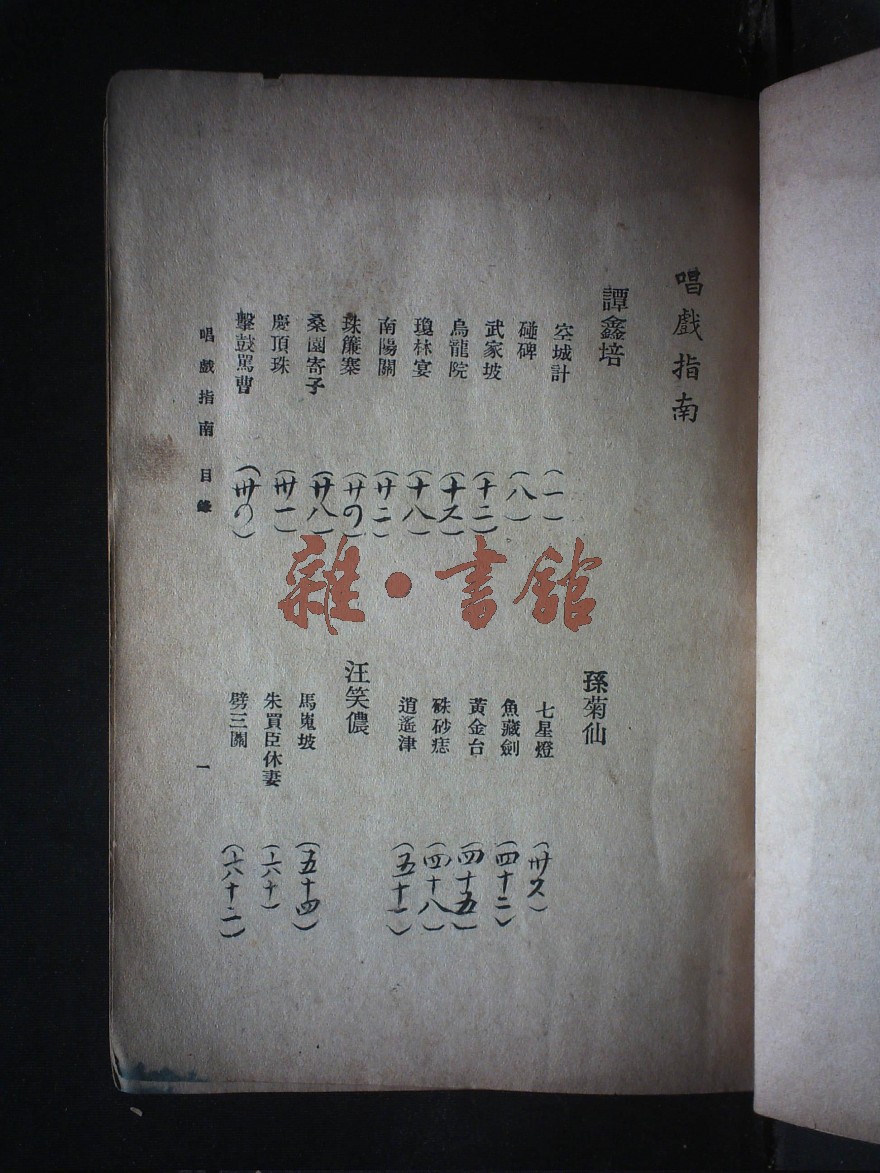 唱戲指南
譚鑫培
空城計 (一)
碰碑 (八)
武家坡 (十二)
烏龍院
瓊林宴 (十八)
南陽關 (廿二)
珠簾寨
桑園寄子 (廿八)
慶頂珠 (卅一)
擊鼓罵曹
孫菊仙
七星燈
魚藏劍 (四十二)
黃金台 (四十五)
硃砂痣 (四十八)
逍遙津 (五十一)
汪笑儂
馬嵬坡 (五十四)
朱買臣休妻 (六十)
劈三關 (六十二)
唱戲指南 目錄
一
雜·書館